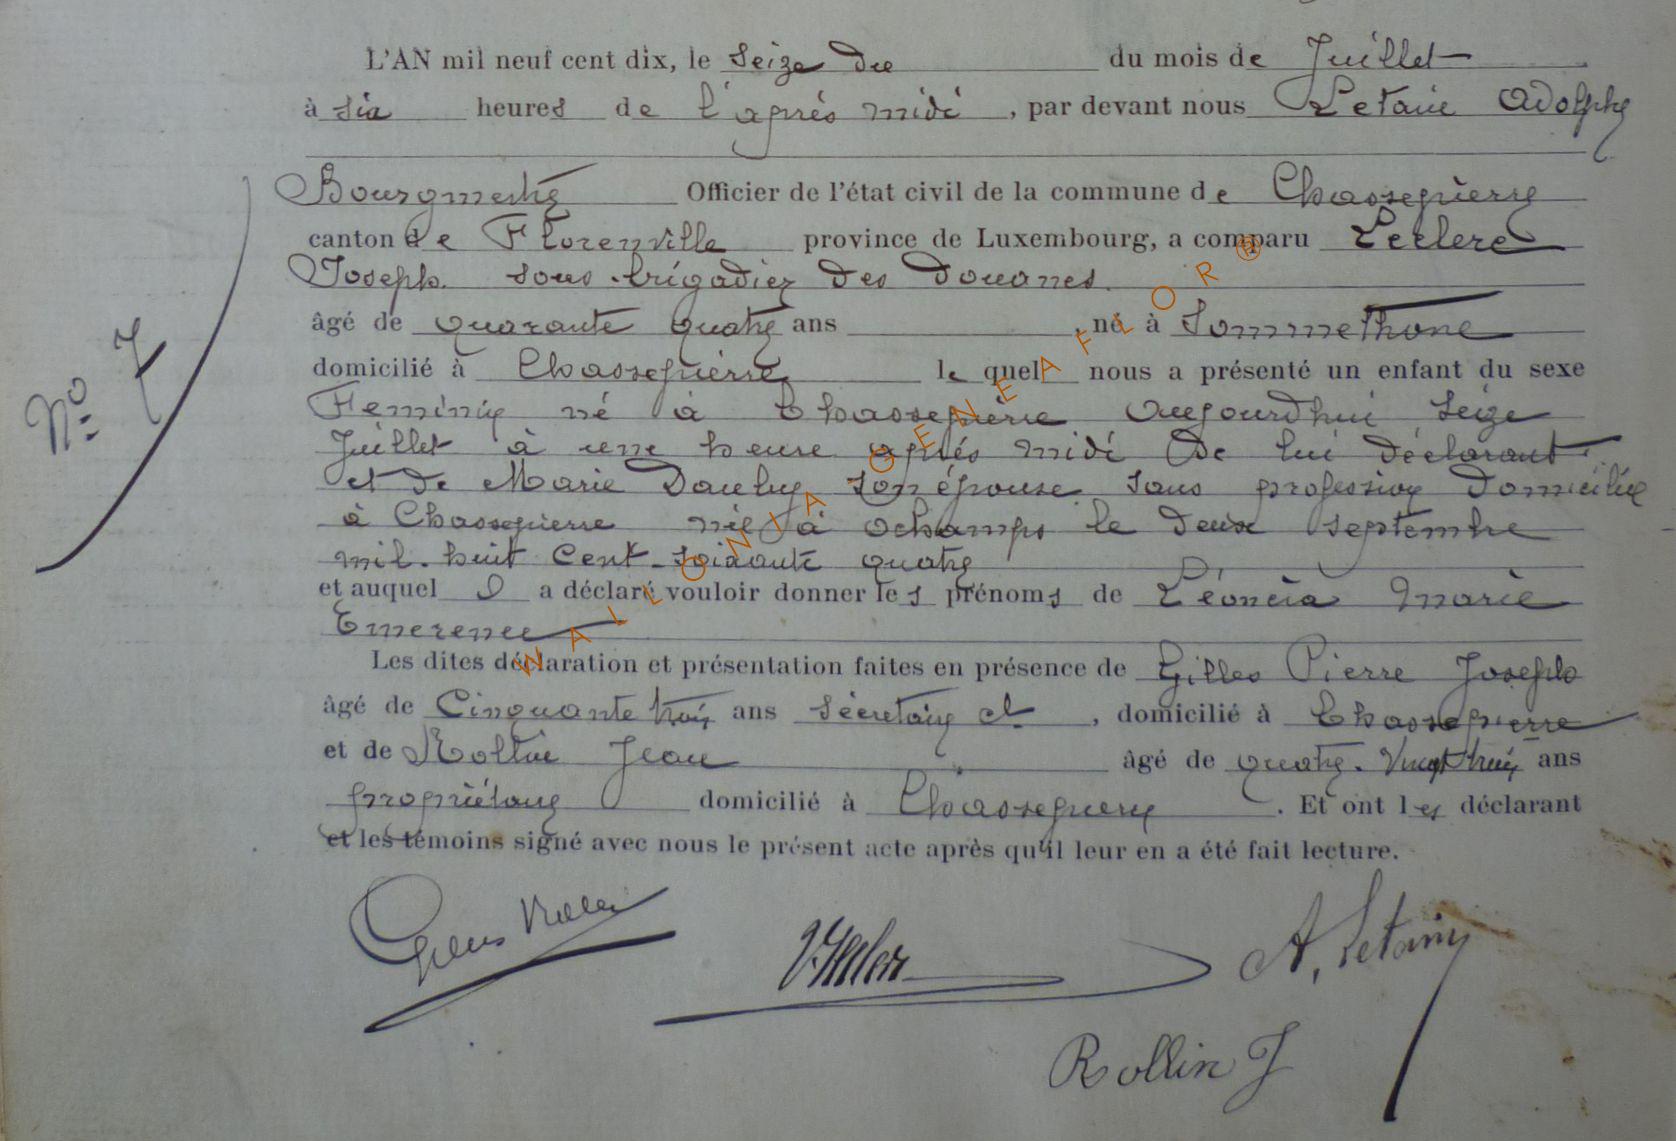 L'AN mil neuf cent dix, le Seize du du mois de Juillet
à six heures de l'aprés midi, par devant nous Letaie Adolphe
Bourgmestre Officier de l'état civil de la commune de Chassepierre
canton de Florenville province de Luxembourg, a comparu Leclerc
Joseph. sous-brigadier des Douanes.
âgé de quarante quatre ans, né à Sommethone
domicilié à Chassepierre lequel nous a présenté un enfant du sexe
Feminin né à Chassepierre Aujourdhui Seize
Juillet à une heure aprés midi De lui déclarant
et de Marie Dauby son épouse sans profession Domiciliée
à Chassepierre née à Ochamps le deux septembre
mil-huit Cent-soixante quatre
et auquel il a déclaré vouloir donner les prénoms de Léoncia Marie
Emerence
Les dites déclaration et présentation faites en présence de Gilles Pierre Joseph
âgé de Cinquante trois ans Sécretaire cl, domicilié à Chassepierre
et de Rollin Jean âgé de quatre-Vingt trois ans
propriétaire domicilié à Chassepierre. Et ont les déclarant
et les témoins signé avec nous le présent acte après qu'il leur en a été fait lecture.
Nº 7
Gilles
A. Letaie
Rollin J
WALLONIA GENEAFLOR ®